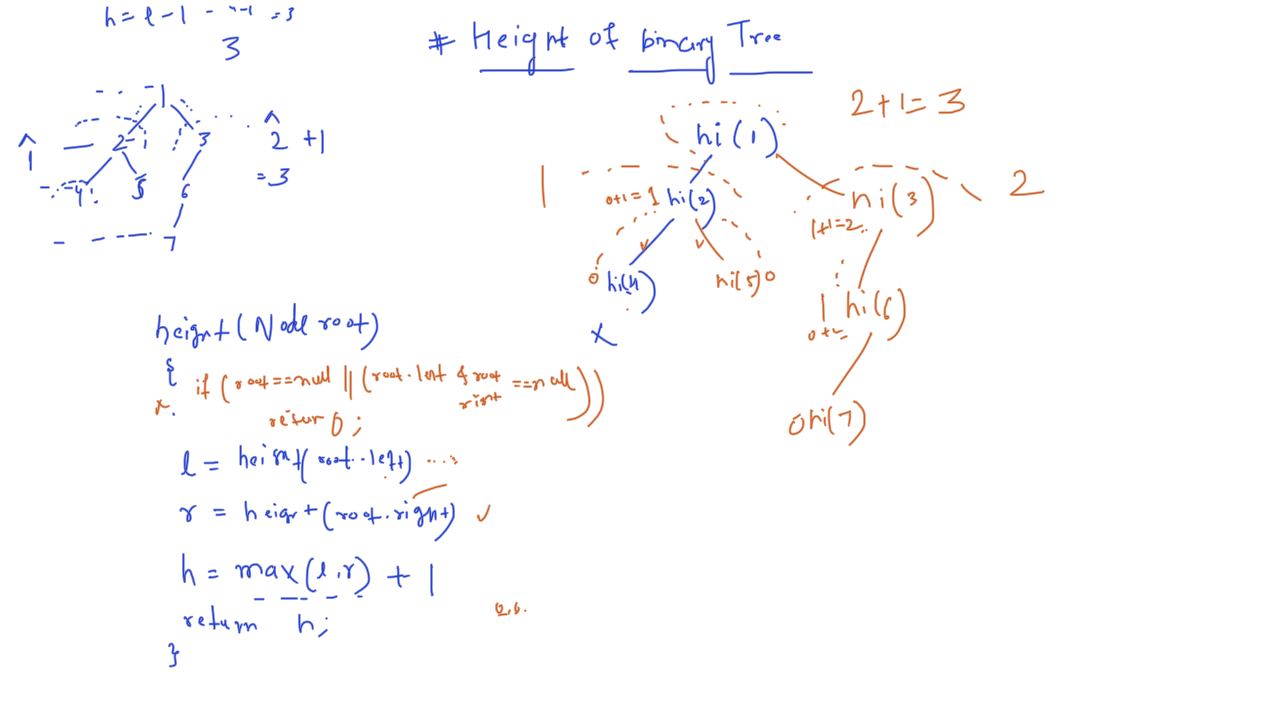 h = l - 1
= 3
3
# Height of binary Tree
1
2
3
4
5
6
7
1
2 + 1
= 3
2+1= 3
hi(1)
1
0+1= 1 hi(2)
hi(3)
2
1+1=2
0 hi(4)
hi(5) 0
1 hi(6)
0 hi(7)
x
height(Node root)
{
x. if (root==null || (root.left & root right ==null))
return 0;
l = height(root.left)
r = height(root.right)
h = max(l,r) + 1
return h;
}